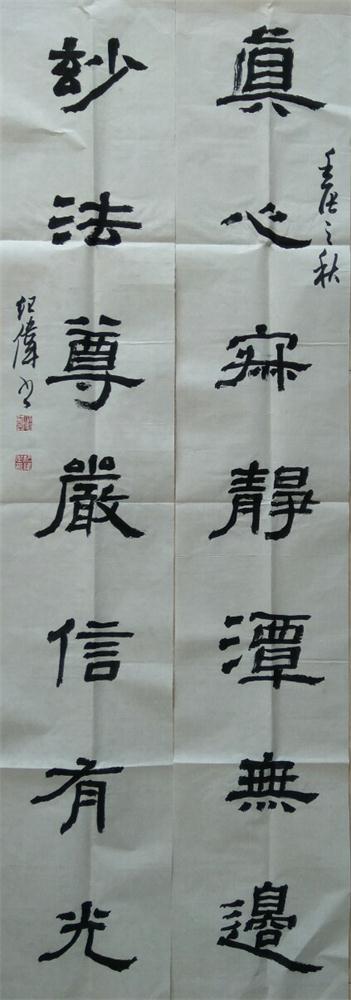 眞心寂靜潭無邊
壬辰之秋
玅法尊嚴信有光
紀偉書